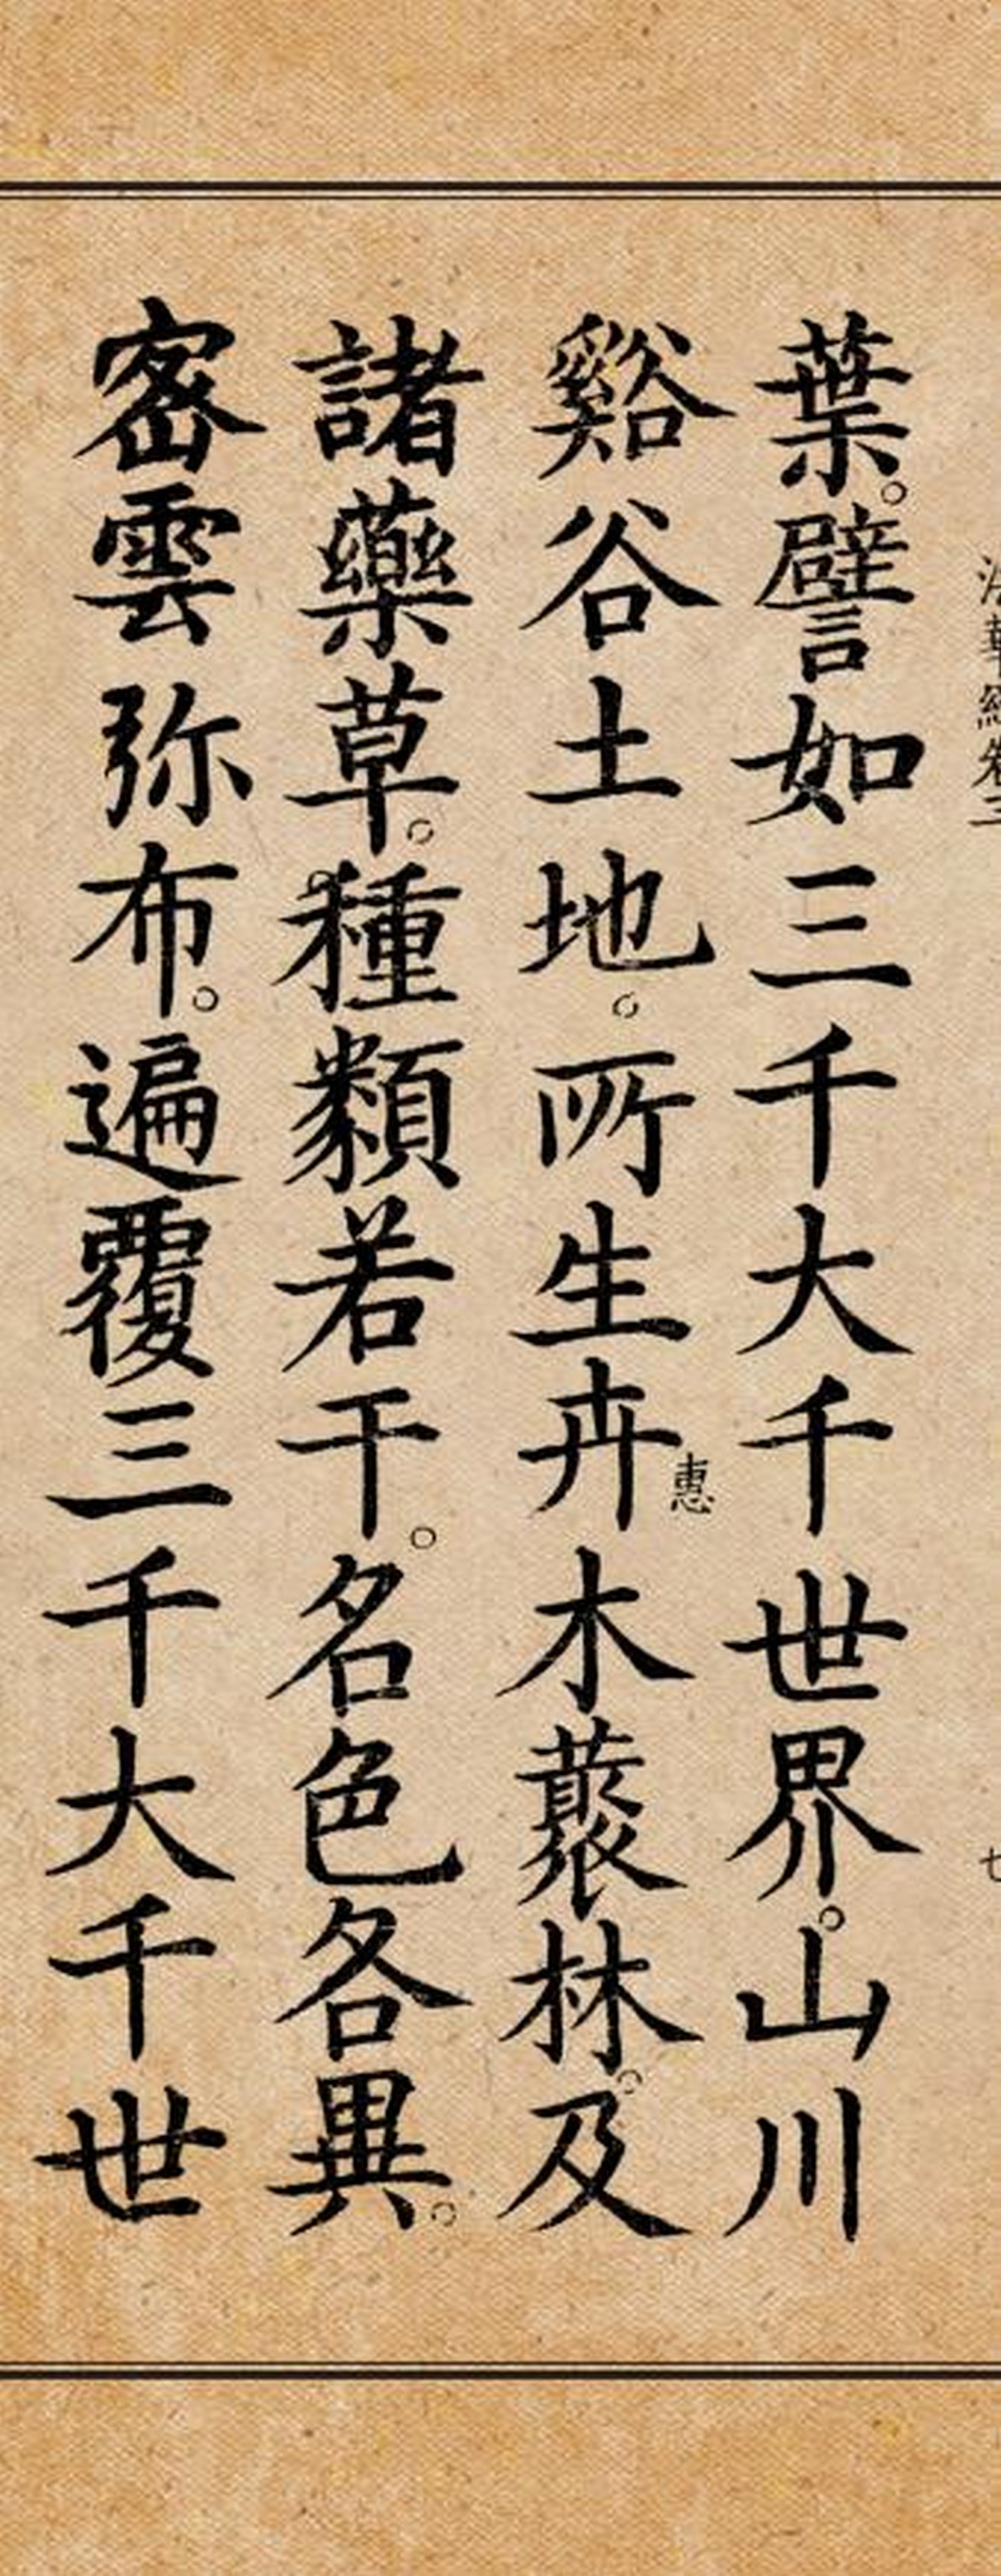 法華經卷三 七
葉。譬如三千大千世界。山川
谿谷土地。所生卉惠木藂林。及
諸藥草。種類若干。名色各異。
密雲弥布。遍覆三千大千世